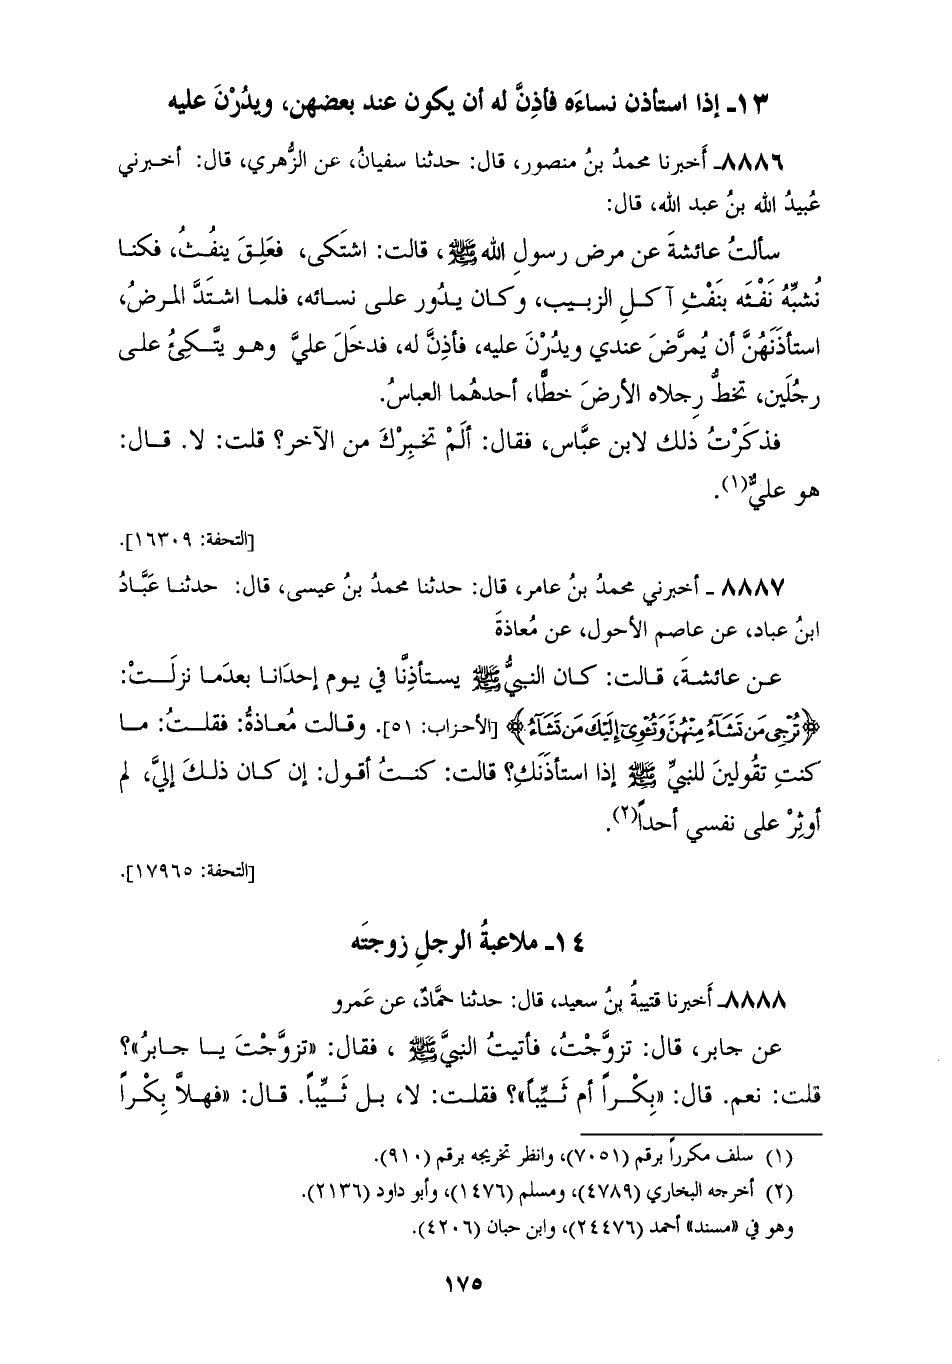 ١٣ـ إذا استأذن نساءَه فأذِنَّ له أن يكون عند بعضهن، ويدُرْنَ عليه
٨٨٨٦ـ أَخبرنا محمدُ بنُ منصور، قال: حدثنا سفيانُ، عن الزُّهري، قال: أخبرني
عُبيدُ الله بنُ عبد الله، قال:
سألتُ عائشةَ عن مرض رسولِ الله ﷺ، قالت: اشتَكى، فعَلِقَ ينفُثُ، فكنا
نُشبِّهُ نَفْثَه بنَفْثِ آكلِ الزبيب، وكان يدُور على نسائه، فلما اشتدَّ المرضُ،
استأذَنَهُنَّ أن يُمرَّضَ عندي ويدُرْنَ عليه، فأذِنَّ له، فدخَلَ عليَّ وهو يتَّكِئُ على
رجُلَين، تخطُّ رِجلاه الأرضَ خطًّا، أحدهُما العباسُ.
فذكَرْتُ ذلك لابن عبَّاس، فقال: ألَمْ تخبِرْكَ من الآخر؟ قلت: لا. قال:
هو عليٌّ(١).
[التحفة: ١٦٣٠٩].
٨٨٨٧ ـ أخبرني محمدُ بنُ عامر، قال: حدثنا محمدُ بنُ عيسى، قال: حدثنا عَبَّادُ
ابنُ عباد، عن عاصم الأحول، عن مُعاذةَ
عن عائشةَ، قالت: كان النبيُّ ﷺ يستأذِنُّا في يوم إحدَانا بعدَما نزلَتْ:
﴿تُرْجِي مَن تَشَآءُ مِنْهُنَّ وَتُـْٔوِىٓ إِلَيْكَ مَن تَشَآءُ﴾ [الأحزاب: ٥١]. وقالت مُعاذةُ: فقلتُ: ما
كنتِ تقُولينَ للنبيِّ ﷺ إذا استأذَنَكِ؟ قالت: كنتُ أقول: إن كان ذلكَ إليَّ، لم
أوثِرْ على نفسي أحداً(٢).
[التحفة: ١٧٩٦٥].
١٤ـ ملاعبةُ الرجلِ زوجتَه
٨٨٨٨ـ أَخبرنا قتيبةُ بنُ سعيد، قال: حدثنا حمَّادٌ، عن عَمرو
عن جابر، قال: تزوَّجْتُ، فأتيتُ النبيَّ ﷺ ، فقال: «تزوَّجْتَ يا جابرُ»؟
قلت: نعم. قال: «بِكْراً أم ثَيِّباً»؟ فقلت: لا، بل ثَيِّباً. قال: «فهلاَّ بِكْراً
(١) سلف مكرراً برقم (٧٠٥١)، وانظر تخريجه برقم (٩١٠).
(٢) أخرجه البخاري (٤٧٨٩)، ومسلم (١٤٧٦)، وأبو داود (٢١٣٦).
وهو في «مسند» أحمد (٢٤٤٧٦)، وابن حبان (٤٢٠٦).
١٧٥